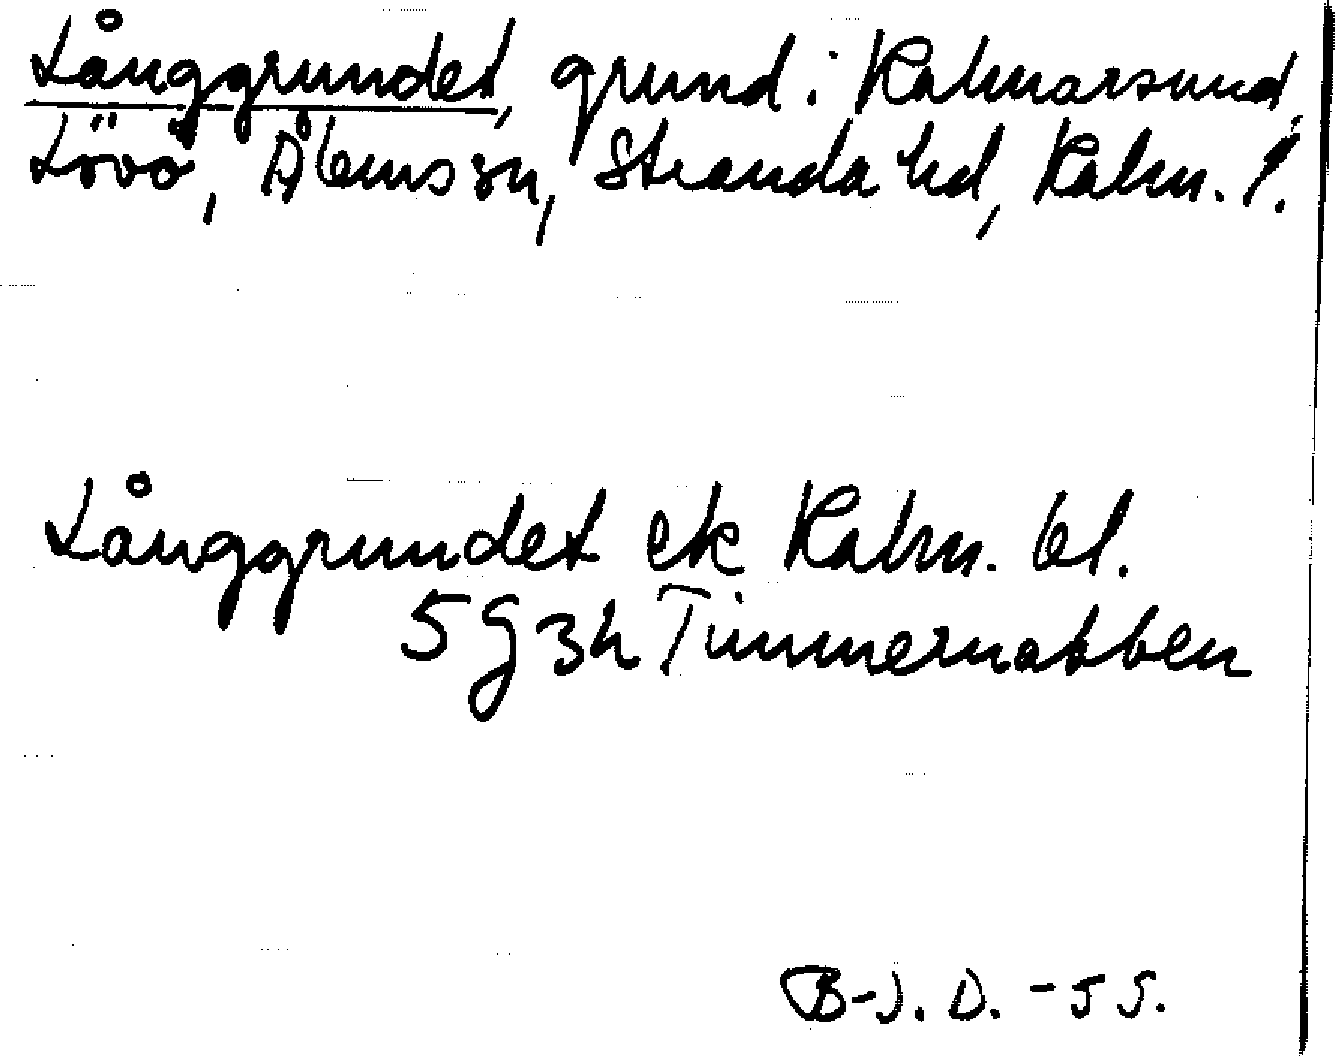 Långgrundet, grund i Kalmarsund,
Lövö, Ålems sn, Stranda hd, Kalm. l.
Långgrundet ek Kalm. bl.
5 G 3 h Timmernabben
B-J. D. - 55.